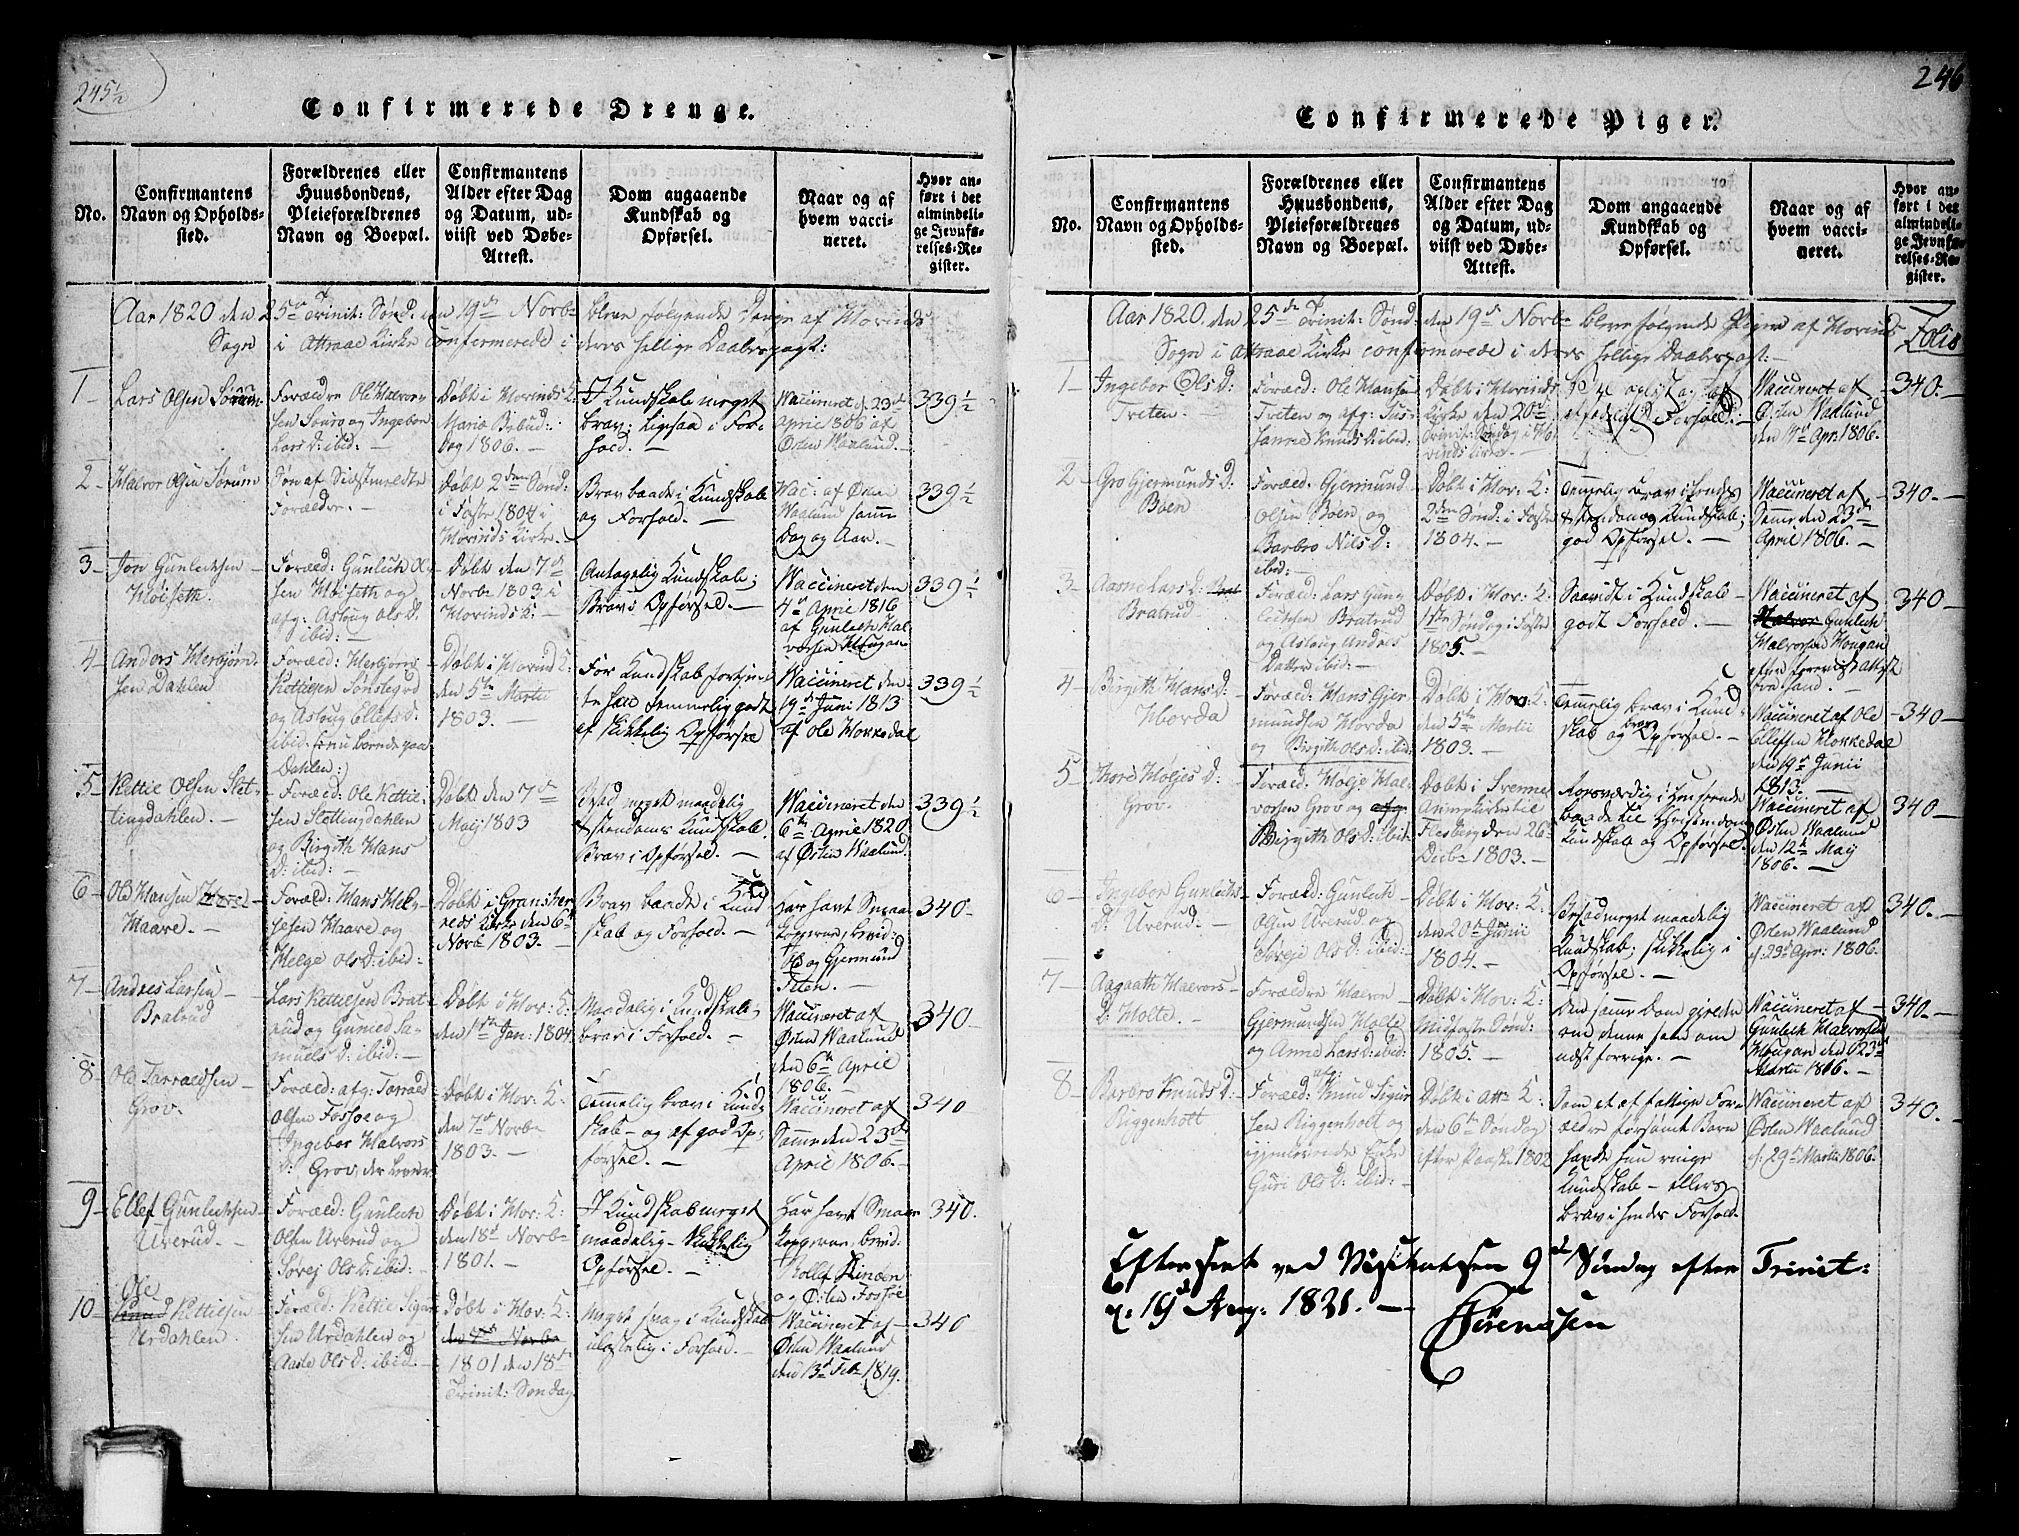 245½
Confirmerede Drenge.
No.
Confirmantens
Navn og Opholds-
sted.
Forældrenes eller
Huusbondens,
Pleieforældrenes
Navn og Boepæl.
Confirmantens
Alder efter Dag
og Datum, ud-
viist ved Døbe-
Attest.
Dom angaaende
Kundskab og
Opførsel.
Naar og af
hvem vacci-
neret.
Hvor an-
ført i det
almindeli-
ge Jevnfø-
relses-Re-
gister.
Aar 1820 den 25de Trinit: Sønd. den 19de Novbr bleve følgende Drenge af Hovinds
Sogn i Attraae Kirke confirmerede i deres hellige Daabespagt:
1
Lars Olsen
Forældre Ole Halvor-
sen og Ingebor
Lars D: ibid: –
Døbt i Hovinds K:
Mariæ Bebud:
Dag 1806. –
I Kundskab meget
brav; ligesaa i For-
hold. –
Vaccineret d. 23de
April 1806 af
Østen Waalund. –
339½
2 –
Halvor Olsen Sørum
Søn af Sidstmeldte
Forældre. –
Døbt 2den Sønd:
i Faste 1804 i
Hovinds Kirke. –
Brav baade i Kundskab
og Forhold. –
Vac: af Østen
Waalund samme
Dag og Aar. –
339½
3 –
Jon Gunleiksen –
Høiseth.
Foræld: Gunleik Ol-
sen Høiseth og
afg: Aslaug Ols D:
ibid: –
Døbt den 7de
Novbr 1803 i
Hovinds K: –
Antagelig Kundskab;
Brav i Opførsel. –
Vaccineret den
4de April 1816
af Gunleik Hal-
vorsen Haugan
339½
4 –
Anders Herbjørn-
sen Dahlen
Foræld: Herbjørn
Kittilsen
og Aslaug Ellefs D:
ibid:
Dahlen:
Døbt i Hovinds K:
den 5te Martii
1803. –
For Kundskab fortjen-
te han temmelig godt
af skikkelig Opførsel
Vaccineret den
19de Juni 1813
af Ole Hovkedal
339½
5 –
Kittil Olsen Slet-
tingdahlen. –
Foræld: Ole Kittil-
sen Slettingdahlen
og Birgith Hans
D: ibid: –
Døbt den 7de
Maij 1803
Besad meget maadelig
Christendoms Kundskab.
Brav i Opførsel. –
Vaccineret den
6te April 1820
af Østen Waalund.
339½
6 –
Ole Hansen
Haare. –
Foræld: Hans Hel-
jesen Haare og
Helge Ols D: ibid: –
Døbt i Gransher-
reds Kirke den 6te
Novbr 1803. –
Brav baade i Kund-
skab og Forhold. –
Har havt Smaae
Kopperne, bevid:
og Gjermund
340 –
7 –
Andres Larsen –
Bratrud
Lars Kittilsen Brat-
rud og Gunild Sa-
muels D: ibid: –
Døbt i Hov: K:
den 1ste Jan: 1804.
Maadelig i Kundskab
brav i Forhold. –
Vaccineret af
Østen Waalund
den 6te April
1806. –
340 –
8 –
Ole Tarraldsen –
Grov.
Foræld: afg: Tarrald
Olsen Fossøe og
Ingebor Halvors
D: Grov der lever
Døbt i Hov: K:
den 7de Novbr
1803. –
Temmelig brav i Kund-
skab – og af god Op-
førsel. –
Vaccineret af
Samme den 23de
April 1806. –
340
9 –
Ellef Gunleiksen
Uverud. –
Foræld: Gunleik
Olsen Uverud og
Sørej Ols D: ibid: –
Døbt i Hov: K:
den 18de Novbr
1801. –
I Kundskab meget
maadelig – Skikkelig
Opførsel. –
Har havt Smaae
Kopperne, bevid:
og Østen Fossøe
340.
10 –
Ole
Knud Kittilsen
Urdahlen.
Foræld: Kittil Sigur-
sen Urdahlen og
Aaste Ols D: ibid. –
Døbt i Hov: K:
1801 den 18de
Trinit: Søndag
Meget svag i Kundskab
ulastelig i Forhold. –
Vaccineret af –
Østen Waalund
den 13de Feb: 1819.
340
246
Confirmerede Piger.
No.
Confirmantens
Navn og Opholds-
sted.
Forældrenes eller
Huusbondens,
Pleieforældrenes
Navn og Boepæl.
Confirmantens
Alder efter Dag
og Datum, ud-
viist ved Døbe-
Attest.
Dom angaaende
Kundskab og
Opførsel.
Naar og af
hvem vacci-
neret.
Hvor an-
ført i det
almindeli-
ge Jevnfø-
relses-Re-
gister.
Aar 1820. den 25de Trinit: Sønd: den 19de Novbr bleve følgende Piger af Hovinds
Sogn i Attraae Kirke confirmerede i deres hellige Daabespagt: –
Folio
1 –
Ingebor Ols D:
Treten. –
Foræld: Ole Hansen
Treten og afg:
Knuds D: ibid:
Døbt i Hovinds
Kirke den 20de
Trinit: Søndag i Ho-
vinds Kirke. –
Vel oplyst og af
Forhold. –
Vaccineret af –
Østen Waalund
den 19de Apr: 1806.
340. –
2 –
Gro Gjermunds D:
Bøen
Foræld: Gjermund
Olsen Bøen og
Barbro Nils D:
ibid: –
Døbt i Hov: K:
2den Sønd: i Faste
1804. –
Temmelig brav i hendes
Kundskab;
god Opførsel. –
Vaccineret af –
Samme den 23de
April 1806. –
340. –
3 –
Aasne Lars D:
Bratrud
Foræld: Lars Gun-
leiksen Bratrud
og Aslaug Andres
Datter ibid: –
Døbt i Hov: K:
1ste Søndag i Faste
1805. –
Saavidt i Kundskab –
godt Forhold. –
Vaccineret af
Halvor Gunleik
Halvorsen Haugan
efter foreviist Attest
340 –
4 –
Birgith Hans D: –
Hovda
Foræld: Hans Gjer-
mundsen Hovda
og Birgith Ols D: ibid:
Døbt i Hov: K:
den 5te Martii
1803. –
Temmelig brav i Kund-
skab og brav Opførsel. –
Vaccineret af Ole
Ellefsen Hovkedal
den 19de Junii
1813. –
340 –
5 –
Thore Høljes D:
Grov.
Foræld: Hølje Hal-
vorsen Grov og afg:
Birgith Ols D: ibid:
Døbt i Svenne
Annex Kirke til
Flesberg den 26de
Decbr 1803. –
Roesværdig i Henseende
baade til Christendoms
Kundskab og Opførsel. –
Vaccineret af
Østen Waalund
den 12te Maij
1806. –
340 –
6 –
Ingebor Gunleiks
D: Uverud. –
Foræld: Gunleik
Olsen Uverud og
Sørej Ols D: ibid: –
Døbt i Hov: K:
den 20de Junii
1804. –
Besad meget maadelig
Kundskab; skikkelig i
Opførsel. –
Vaccineret af
Østen Waalund
d. 29de Apr: 1806.
340. –
7 –
Aagaath Halvors –
D: Holte. –
Forældre Halvor –
Gjermundsen Holte
og Anne Lars D: ibid:
Døbt i Hov: K:
Midfaste Sønd:
1805. –
Den samme Dom gjelder
om denne som om
næst forrige. –
Vaccineret af –
Gunleik Halvorsen
Haugan den 23de
Martii 1816. –
340. –
8 –
Barbro Knuds D: –
Riggenhott
Foræld: afg: Knud Sigur-
sen Riggenhott og
igjenlevende Enke
Guri Ols D: ibid: –
Døbt i Att: K:
den 6te Søndag
efter Paaske 1802
Som et af fattige For-
ældre forsømt Barn
havde hun ringe
Kundskab – ellers
brav i hendes Forhold.
Vaccineret af
Østen Waalund
d. 29de Martii 1806.
340. –
Efterseet ved Visitatsen 9de Søndag efter Trinit:
d: 19de Aug: 1821. –
Sørenssen